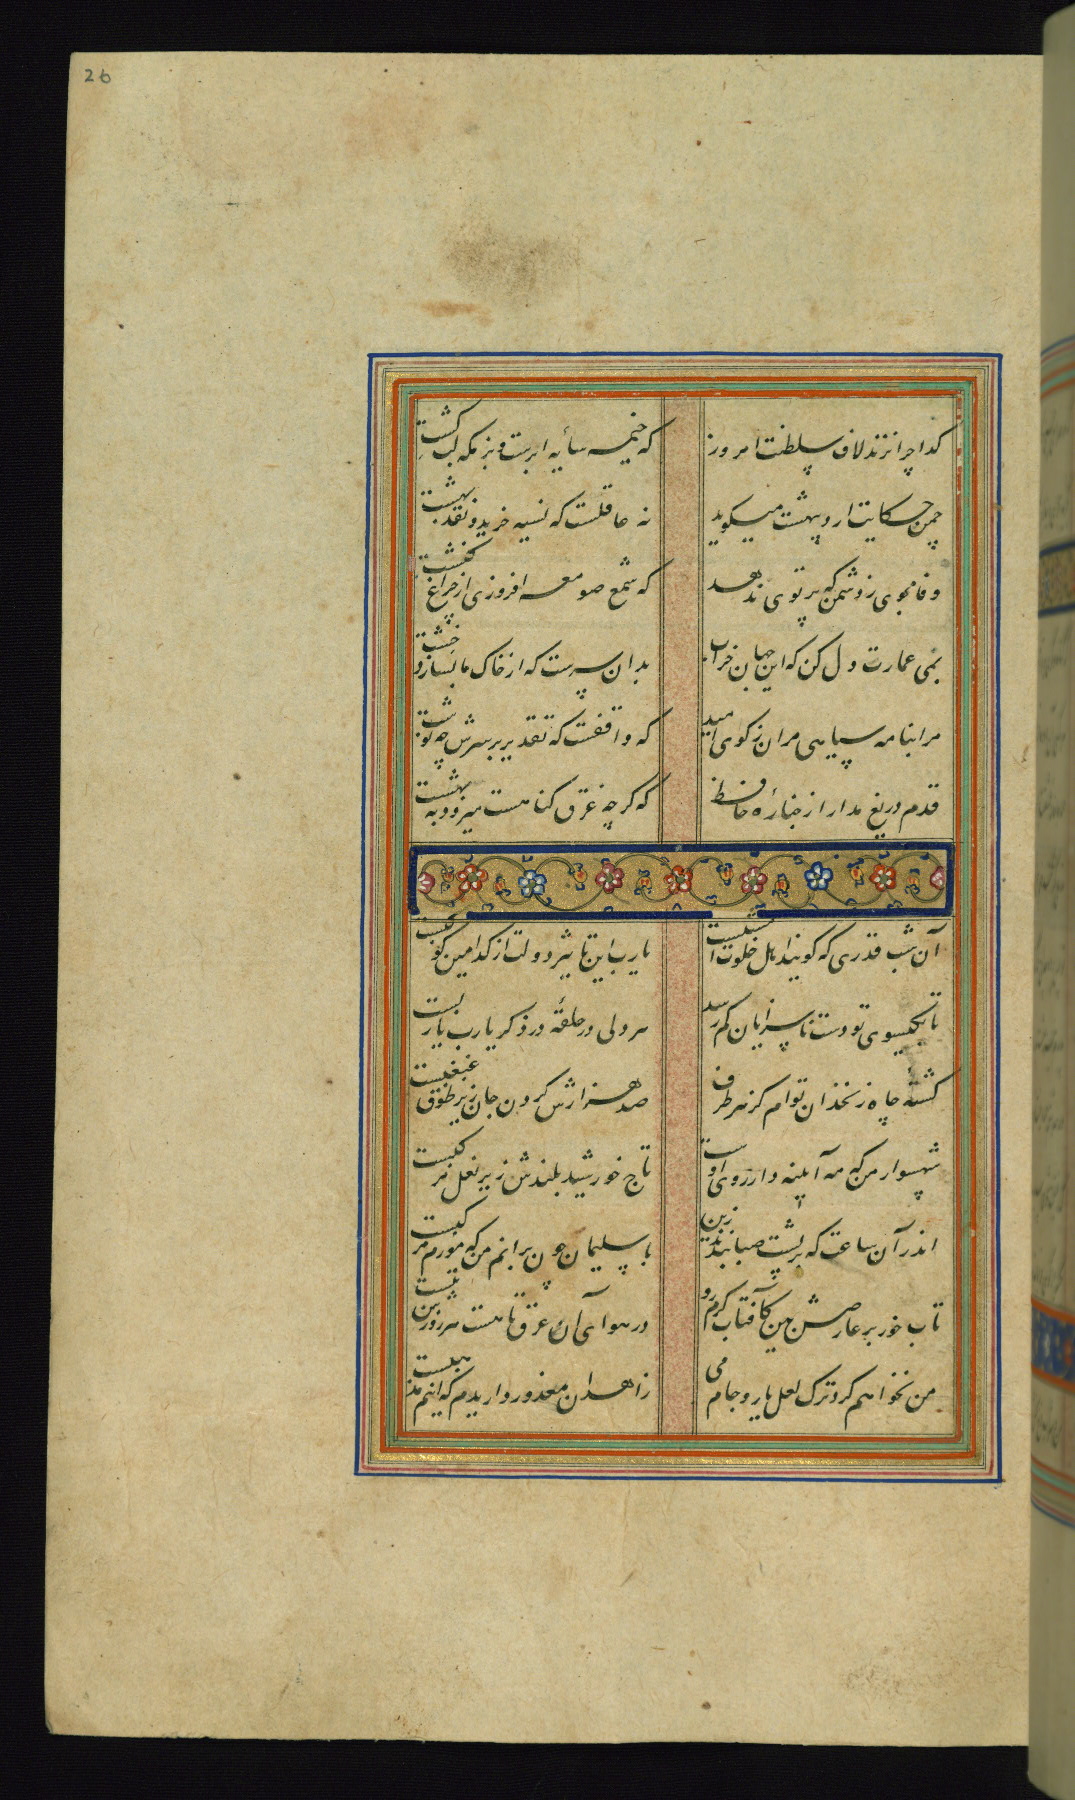 26
کدا چرا نزند لاف سلطنت امروز
که خیمه سایه ابرست و بزمکه لب کشت
چمن حکایت اردیبهشت میکوید
نه عاقلست که نسیه خرید و نقد بهشت
وفا مجوی ز دشمن که پرتوی ندهد
که شمع صومعه افروزی از چراغ کنشت
بمی عمارت دل کن که این جهان خراب
بدان سرست که از خاک ما بسازد خشت
مرا بنامه سیاهی مران ز کوی امید
که واقفست که تقدیر بر سرش چه نوشت
قدم دریغ مدار از جنازه حافظ
که کرچه غرق کناهست میرود به بهشت
آن شب قدری که کویند اهل خلوت امشبست
یا رب این تاثیر دولت از کدامین کوکبست
تا بکیسوی تو دست ناسزایان کم رسد
هر دلی در حلقهٔ در ذکر یا رب یا ربست
کشتهٔ چاه زنخدان توام کز هر طرف
صد هزارش کردن جان زیر طوق غبغبست
شهسوار من که مه آیینه دار روی اوست
تاج خورشید بلندش زیر نعل مرکبست
اندر آن ساعت که بر پشت صبا بندند زین
با سلیمان چون برانم من که مورم مرکبست
تاب خور بر عارضش بین کآفتاب کرم رو
در هوای آن عرق تا هست هر روزش تبست
من نخواهم کرد ترک لعل یار و جام می
زاهدان معذور داریدم که اینم مذهبست